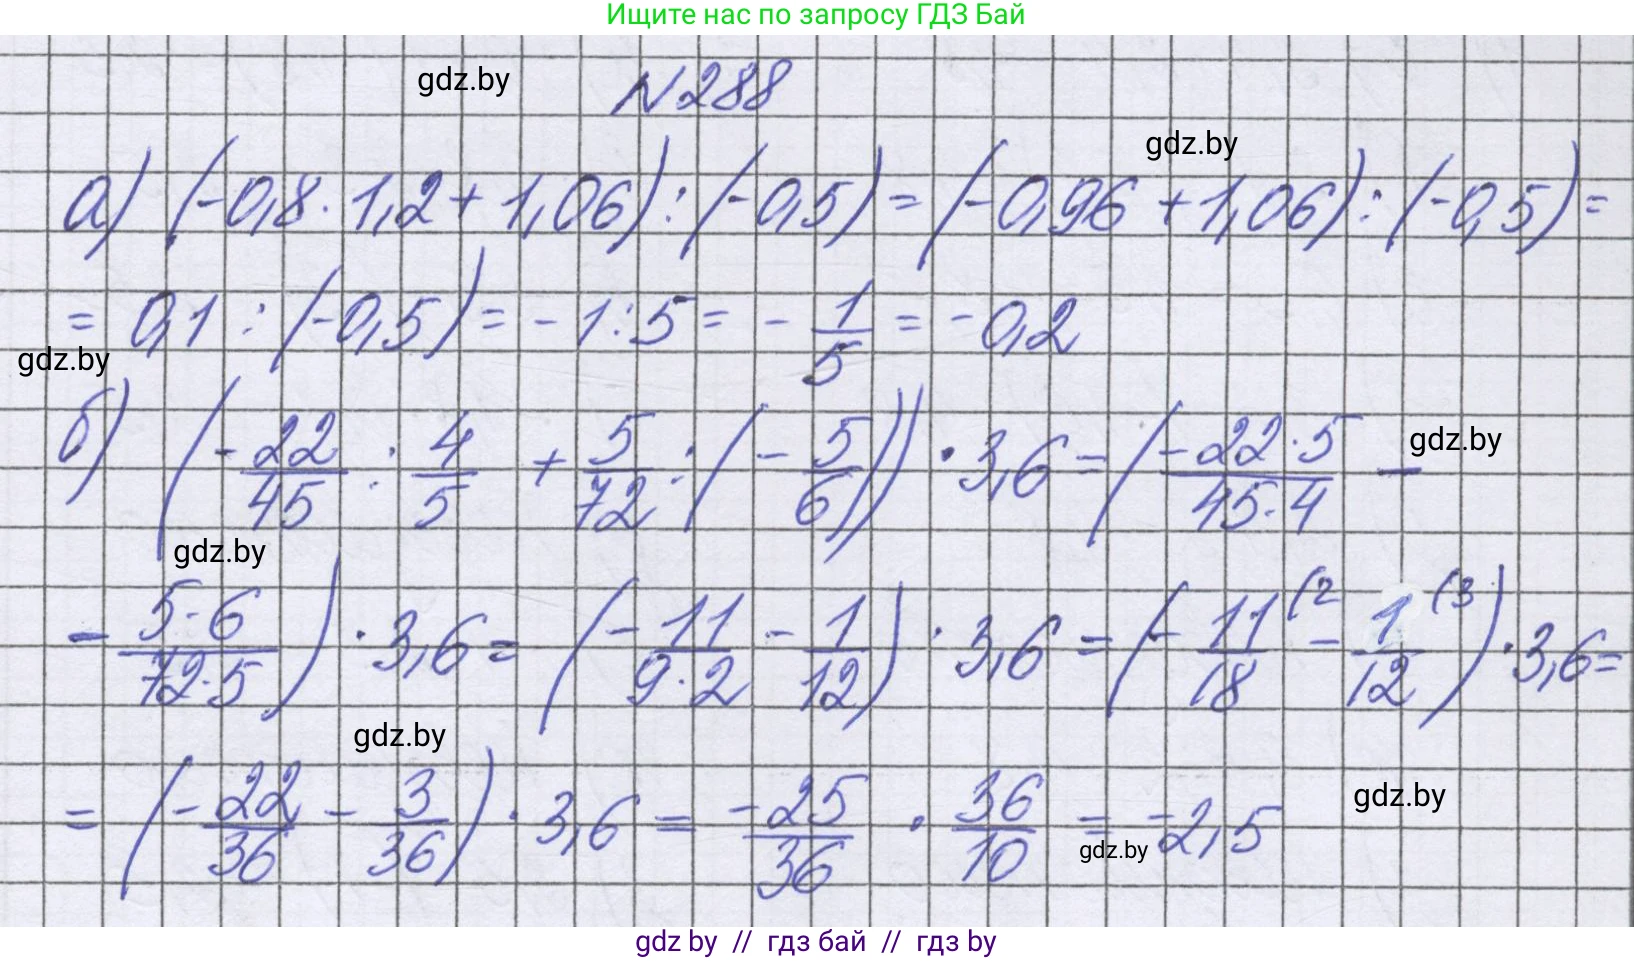 Ищите нас по запросу ГДЗ Бай
gdz.by
№288
gdz.by
а) (-0,8·1,2+1,06):(-0,5)=(-0,96+1,06):(-0,5)=
=0,1:(-0,5)=-1:5=-1/5=-0,2
gdz.by
б) (-22/45:4/5+5/72:(-5/6))·3,6=(-22·5/45·4 -
gdz.by
gdz.by
-5·6/72·5)·3,6=(-11/9·2-1/12)·3,6=(-11/18(2-1/12(3)·3,6=
gdz.by
=(-22/36-3/36)·3,6=-25/36·36/10=-2,5
gdz.by
gdz.by
gdz by // гдз бай // гдз by